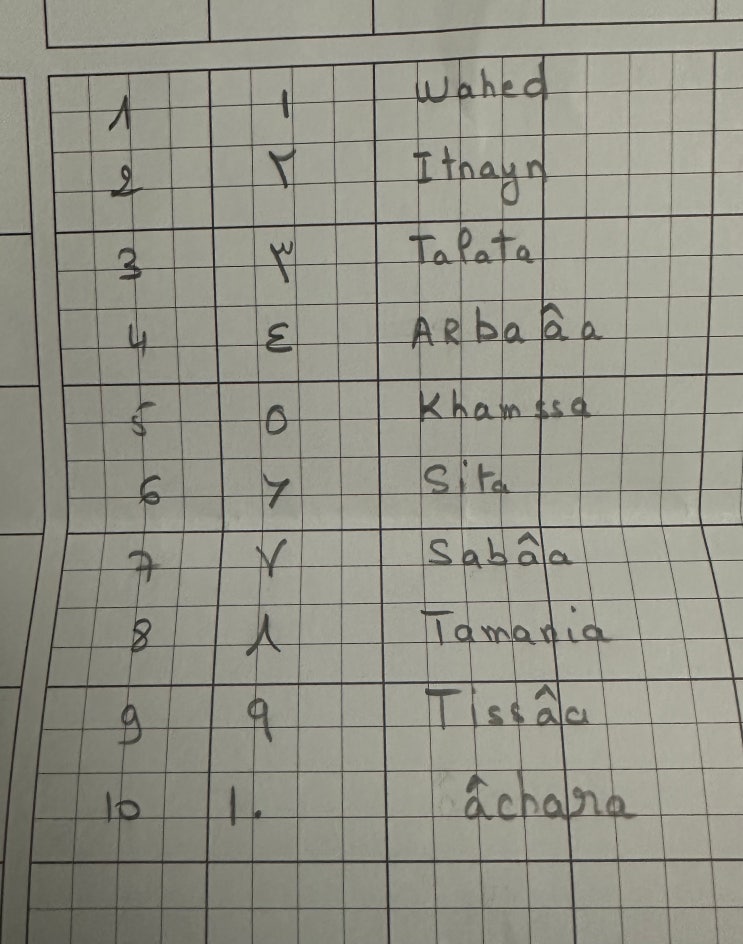 1 ١ Wahed
2 ٢ Itnayn
3 ٣ Talata
4 ٤ ARbaâa
5 ٥ Khamssa
6 ٦ Sita
7 ٧ Sabâa
8 ٨ Tamania
9 ٩ Tissâa
10 ١٠ âchara